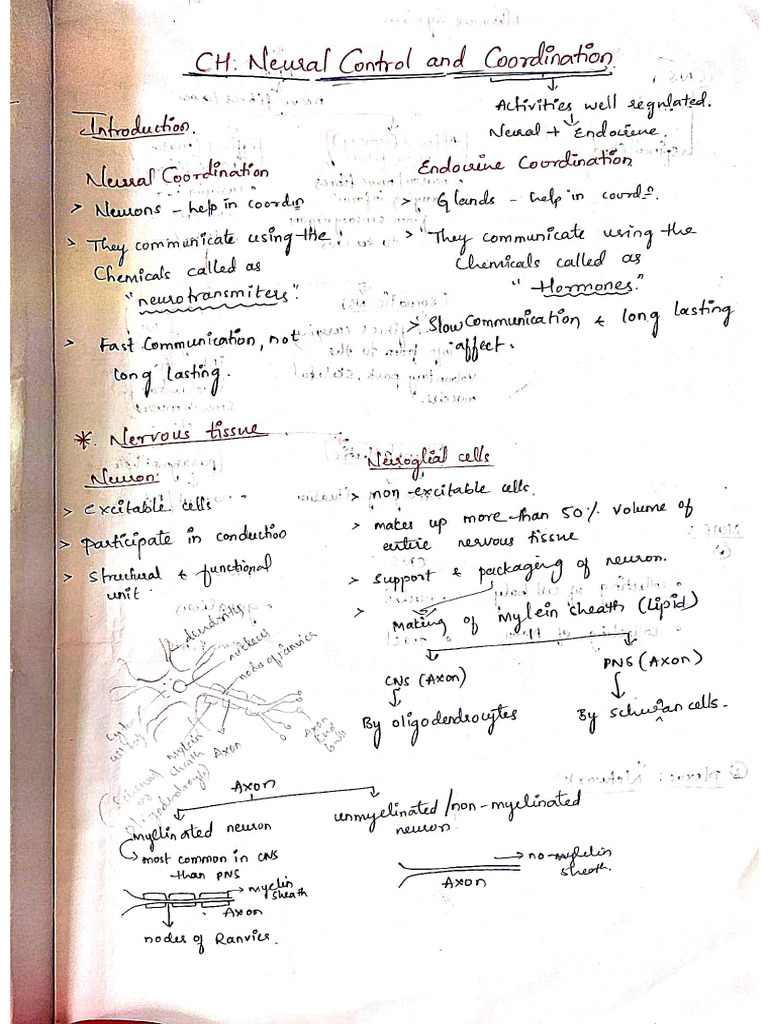 CH: Neural Control and Coordination
Activities well regulated.
Neural + Endocrine.
Introduction.
Neural Coordination
> Neurons - help in coordn
> They communicate using the
Chemicals called as
"neurotransmiters".
> Fast Communication, not
long lasting.
Endocrine Coordination
> Glands - help in coordn.
> "They communicate using the
Chemicals called as
"Hormones."
> Slow Communication & long lasting
affect.
* Nervous tissue
Neuron:
> excitable cells
> participate in conduction
> structural & functional
unit.
Neuroglial cells
> non-excitable cells.
> makes up more than 50% volume of
entire nervous tissue
> support & packaging of neuron.
> Making of Mylein sheath (Lipid)
CNS (Axon)
By oligodendrocytes
PNS (Axon)
By schwan cells.
dendrites
nucleus
nodes of ranvies
Mylein
sheath
Axon
Axon
Axon
Myelinated neuron
most common in CNS
than PNS
myelin
sheath
Axon
nodes of Ranvies.
unmyelinated/non-myelinated
neuron
no-myelein
sheath.
Axon